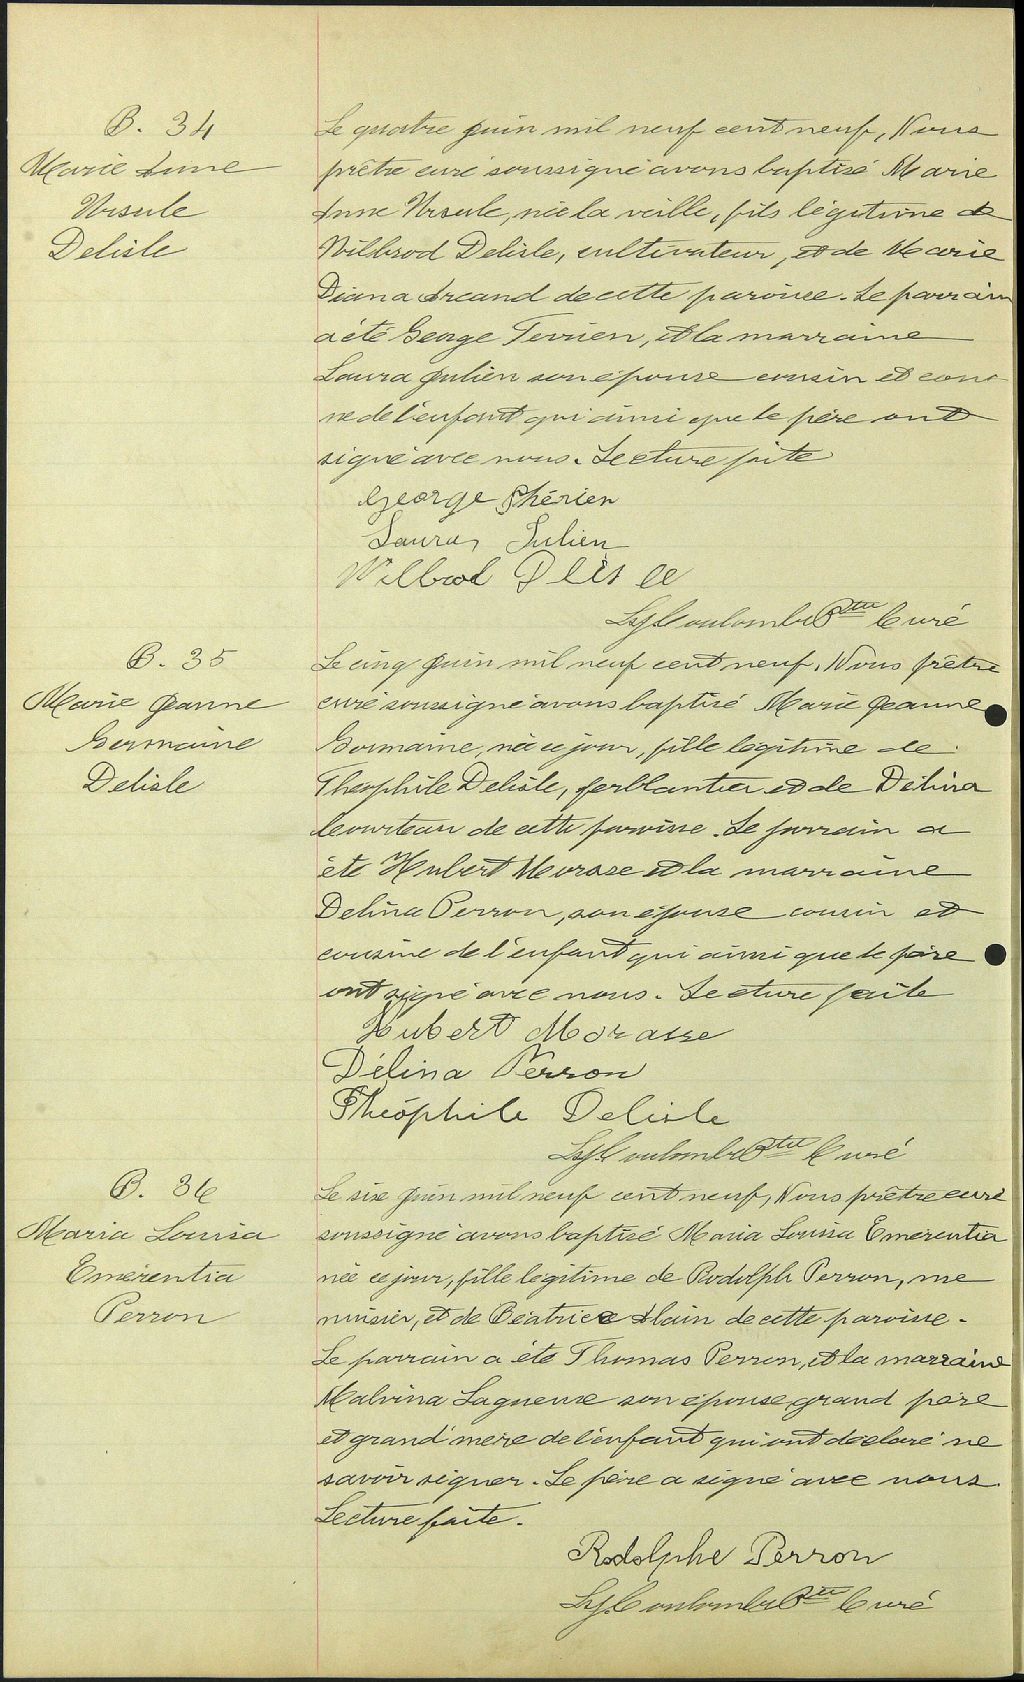 B. 34
Marie Anne
Ursule
Delisle
Le quatre juin mil neuf cent neuf, Nous
prêtre curé soussigné avons baptisé Marie
Anne Ursule, née la veille, fils légitime de
Wilbrod Delisle, cultivateur, et de Marie
Diana Arcand de cette paroisse. Le parrain
a été George Terrien, et la marraine
Laura Julien son épouse cousin et cousi
ne de l'enfant qui ainsi que le père ont
signé avec nous. Lecture faite
George Thérien
Laura Julien
Wilbrod Delisle
Coulombe Ptre Curé
B. 35
Marie Jeanne
Germaine
Delisle
Le cinq juin mil neuf cent neuf, Nous prêtre
curé soussigné avons baptisé Marie Jeanne
Germaine, née ce jour, fille légitime de
Théophile Delisle, ferblantier et de Délina
Courteau de cette paroisse. Le parrain a
été Hubert Morasse et la marraine
Delina Perron, son épouse cousin et
cousine de l'enfant qui ainsi que le père
ont signé avec nous. Lecture faite
Hubert Morasse
Délina Perron
Théophile Delisle
Coulombe Ptre Curé
B. 36
Maria Louisa
Emérentia
Perron
Le six juin mil neuf cent neuf, Nous prêtre curé
soussigné avons baptisé Maria Louisa Emérentia
née ce jour, fille légitime de Rodolph Perron, me
nuisier, et de Béatrice Alain de cette paroisse.
Le parrain a été Thomas Perron, et la marraine
Malvina Lagueuse son épouse grand père
et grand'mère de l'enfant qui ont déclaré ne
savoir signer. Le père a signé avec nous.
Lecture faite.
Rodolphe Perron
Coulombe Ptre Curé